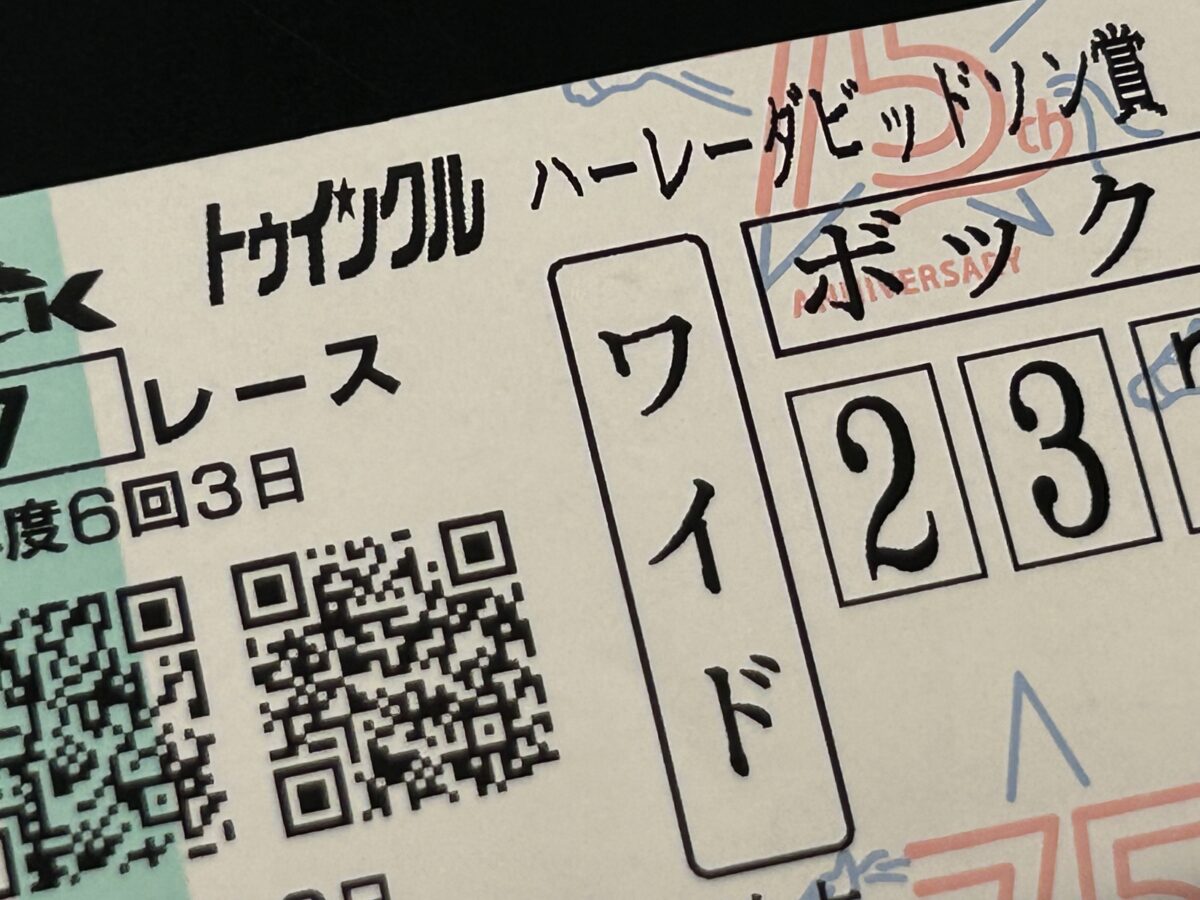 ハーレーダビッドソン賞
トゥインクル
K
ボック
ANNIVERSARY
75th
7レース
ワイド
2 3
度6回3日
75